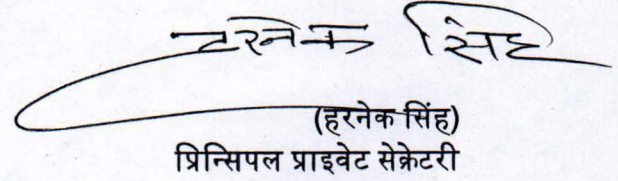 हरनेक सिंह
(हरनेक सिंह)
प्रिन्सिपल प्राइवेट सेक्रेटरी